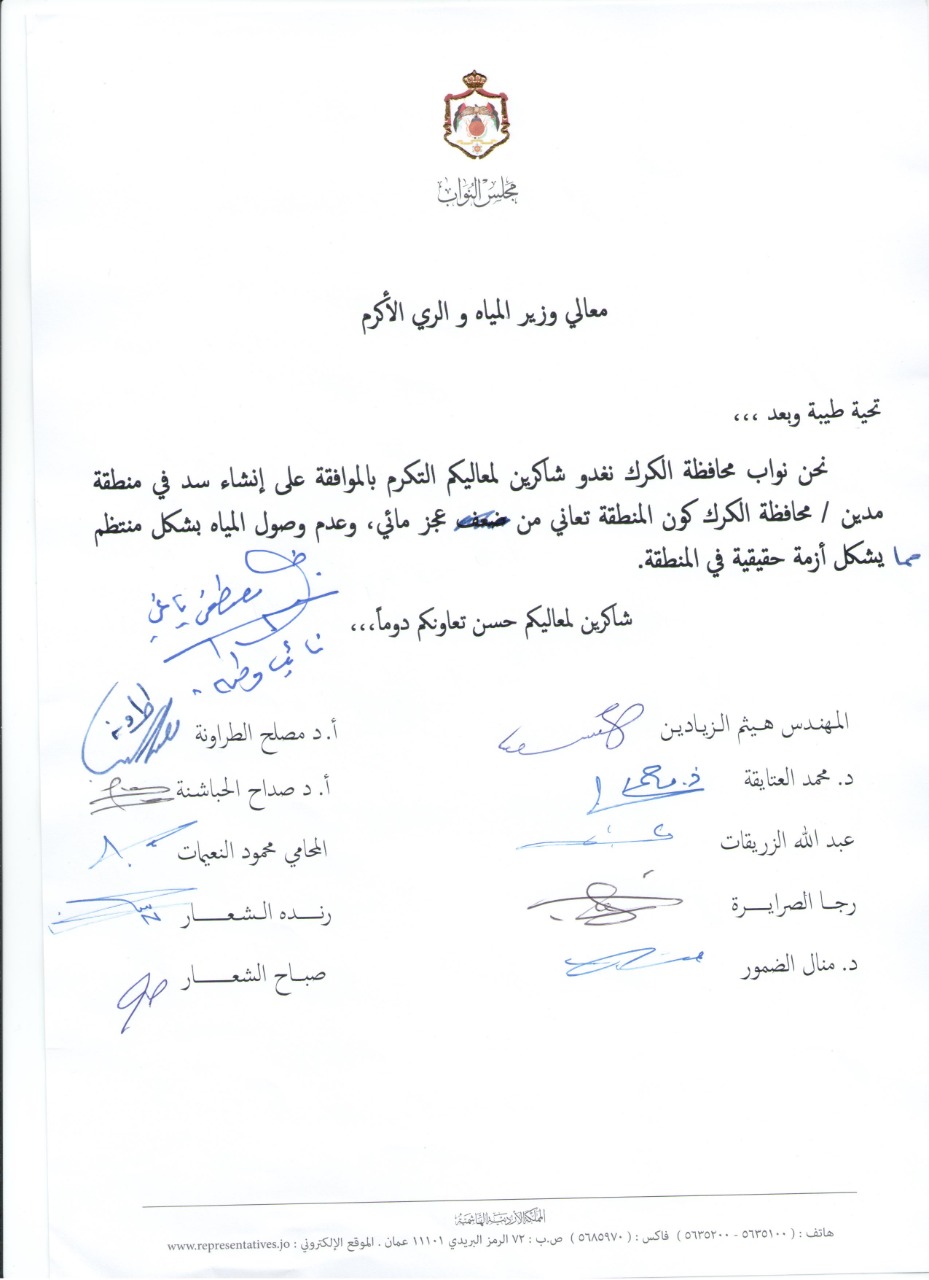 مجلس النواب
معالي وزير المياه و الري الأكرم
تحية طيبة وبعد ،،،
نحن نواب محافظة الكرك نغدو شاكرين لمعاليكم التكرم بالموافقة على إنشاء سد في منطقة
مدين / محافظة الكرك كون المنطقة تعاني من ضعف عجز مائي، وعدم وصول المياه بشكل منتظم
مما يشكل أزمة حقيقية في المنطقة.
شاكرين لمعاليكم حسن تعاونكم دوماً،،،
مصطفى ياغي
نائب وطن
المهندس هيثم الزيادين
أ.د مصلح الطراونة
د. محمد العتايقة
أ. د صداح الحباشنة
عبد الله الزريقات
المحامي محمود النعيمات
رجا الصرايرة
رنده الشعار
د. منال الضمور
صباح الشعار
المملكة الأردنية الهاشمية
هاتف : ( ٥٦٣٥١٠٠ - ٥٦٣٥٢٠٠ ) فاكس : ( ٥٦٨٥٩٧٠ ) ص.ب : ٧٢ الرمز البريدي ١١١٠١ عمان . الموقع الإلكتروني : www.representatives.jo